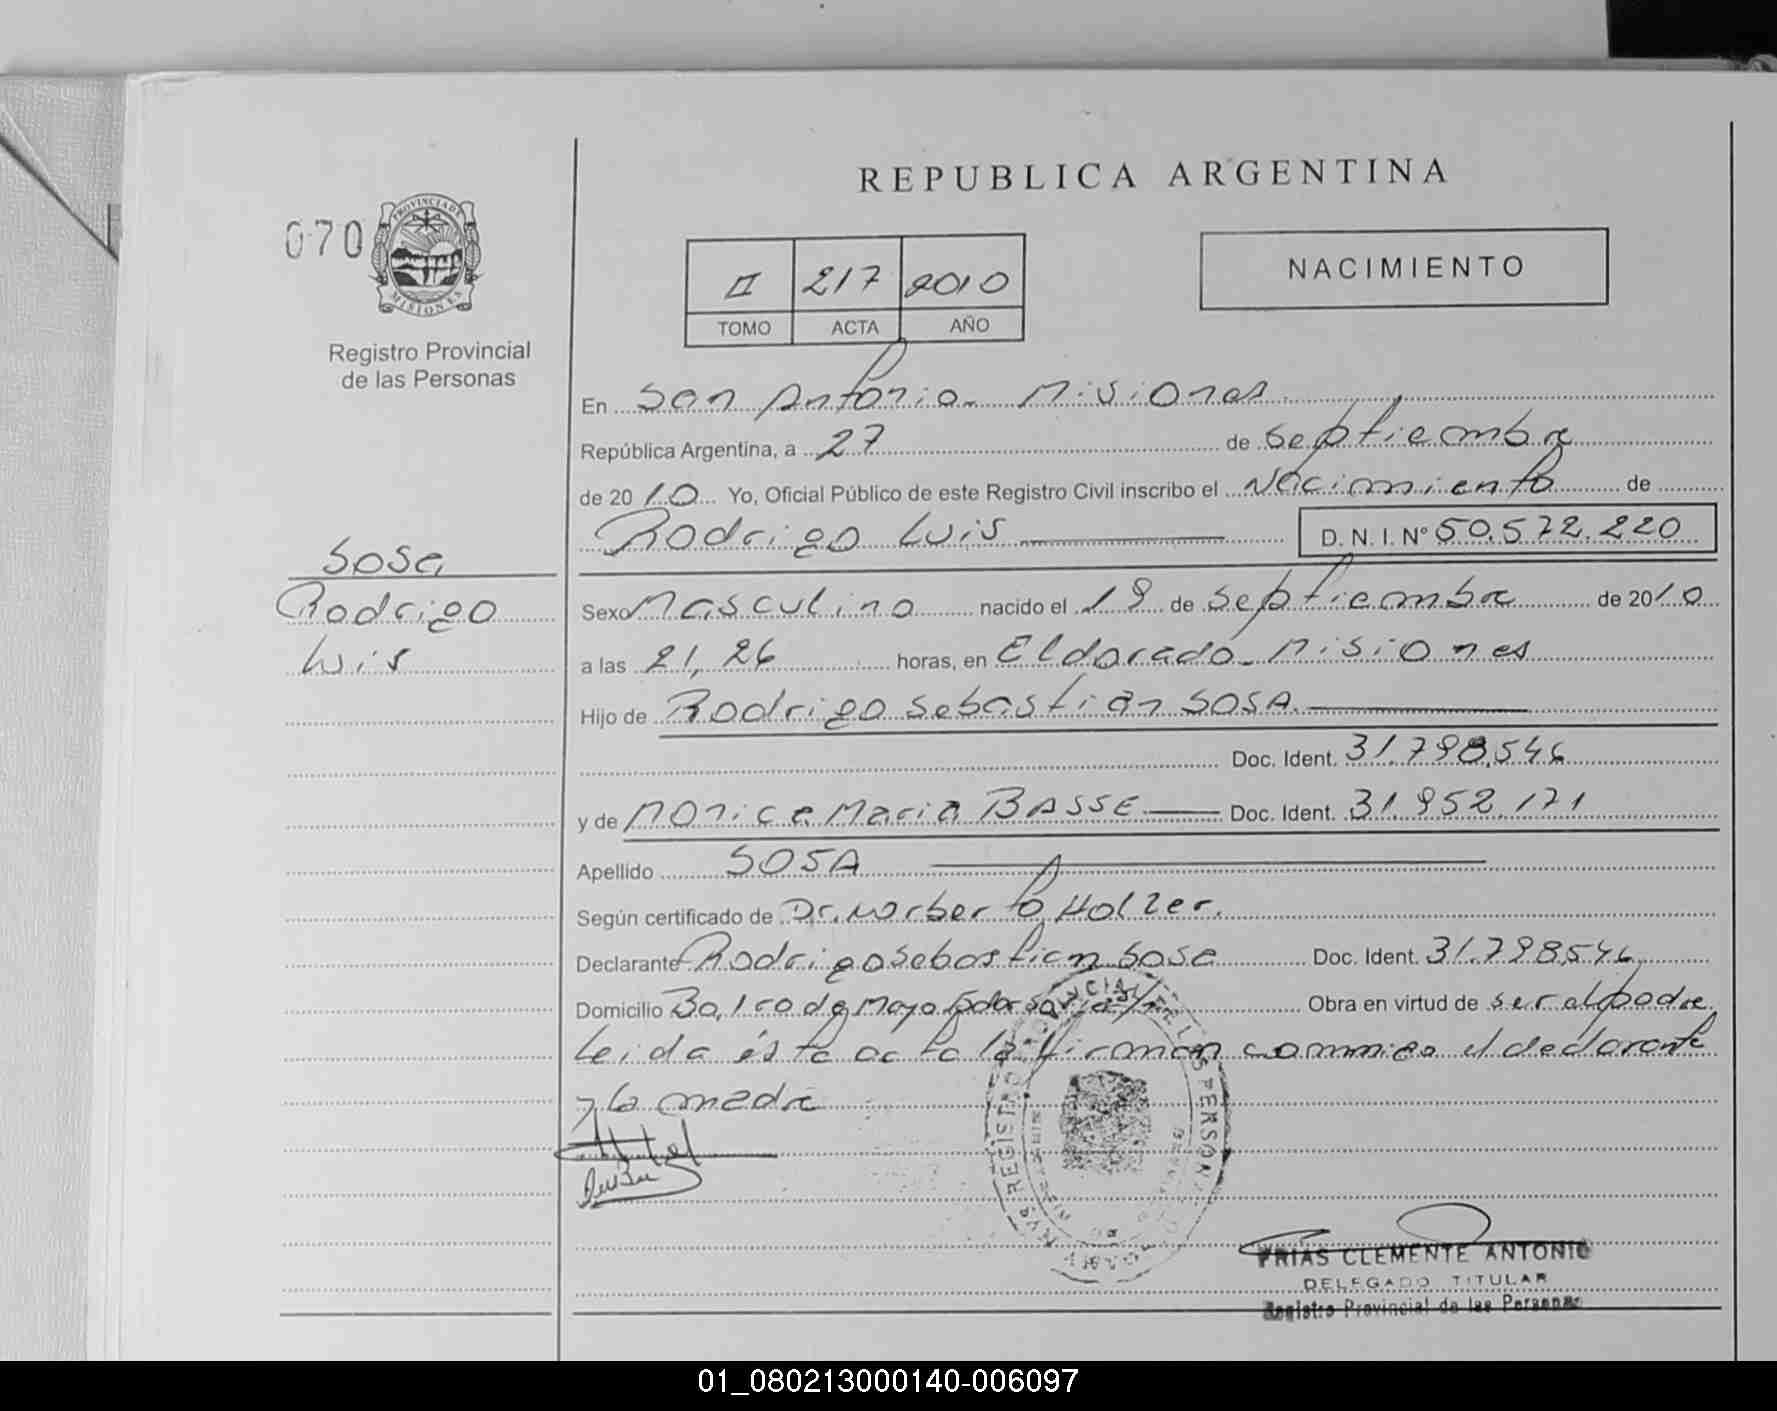 REPUBLICA ARGENTINA
070
PROVINCIA DE
MISIONES
Registro Provincial
de las Personas
II 217 2010
TOMO ACTA AÑO
NACIMIENTO
En San Antonio - Misiones
República Argentina, a 27 de septiembre
de 2010 Yo, Oficial Público de este Registro Civil inscribo el Nacimiento de
Rodrigo Luis D. N. I. Nº 50.572.220
Sosa
Rodrigo
Luis
Sexo Masculino nacido el 19 de septiembre de 2010
a las 21,26 horas, en Eldorado - Misiones
Hijo de Rodrigo Sebastian SOSA
Doc. Ident. 31.798.546
y de Monica Maria BASSE Doc. Ident. 31.952.171
Apellido SOSA
Según certificado de Dr. Norberto Holzer.
Declarante Rodrigo Sebastian Sosa Doc. Ident. 31.798.546
Domicilio Bo, 1ro de Mayo s/n Obra en virtud de ser el padre.
Leida ésta acta la firman conmigo el declarante
y la madre
FRIAS CLEMENTE ANTONIO
DELEGADO TITULAR
Registro Provincial de las Personas
01_080213000140-006097